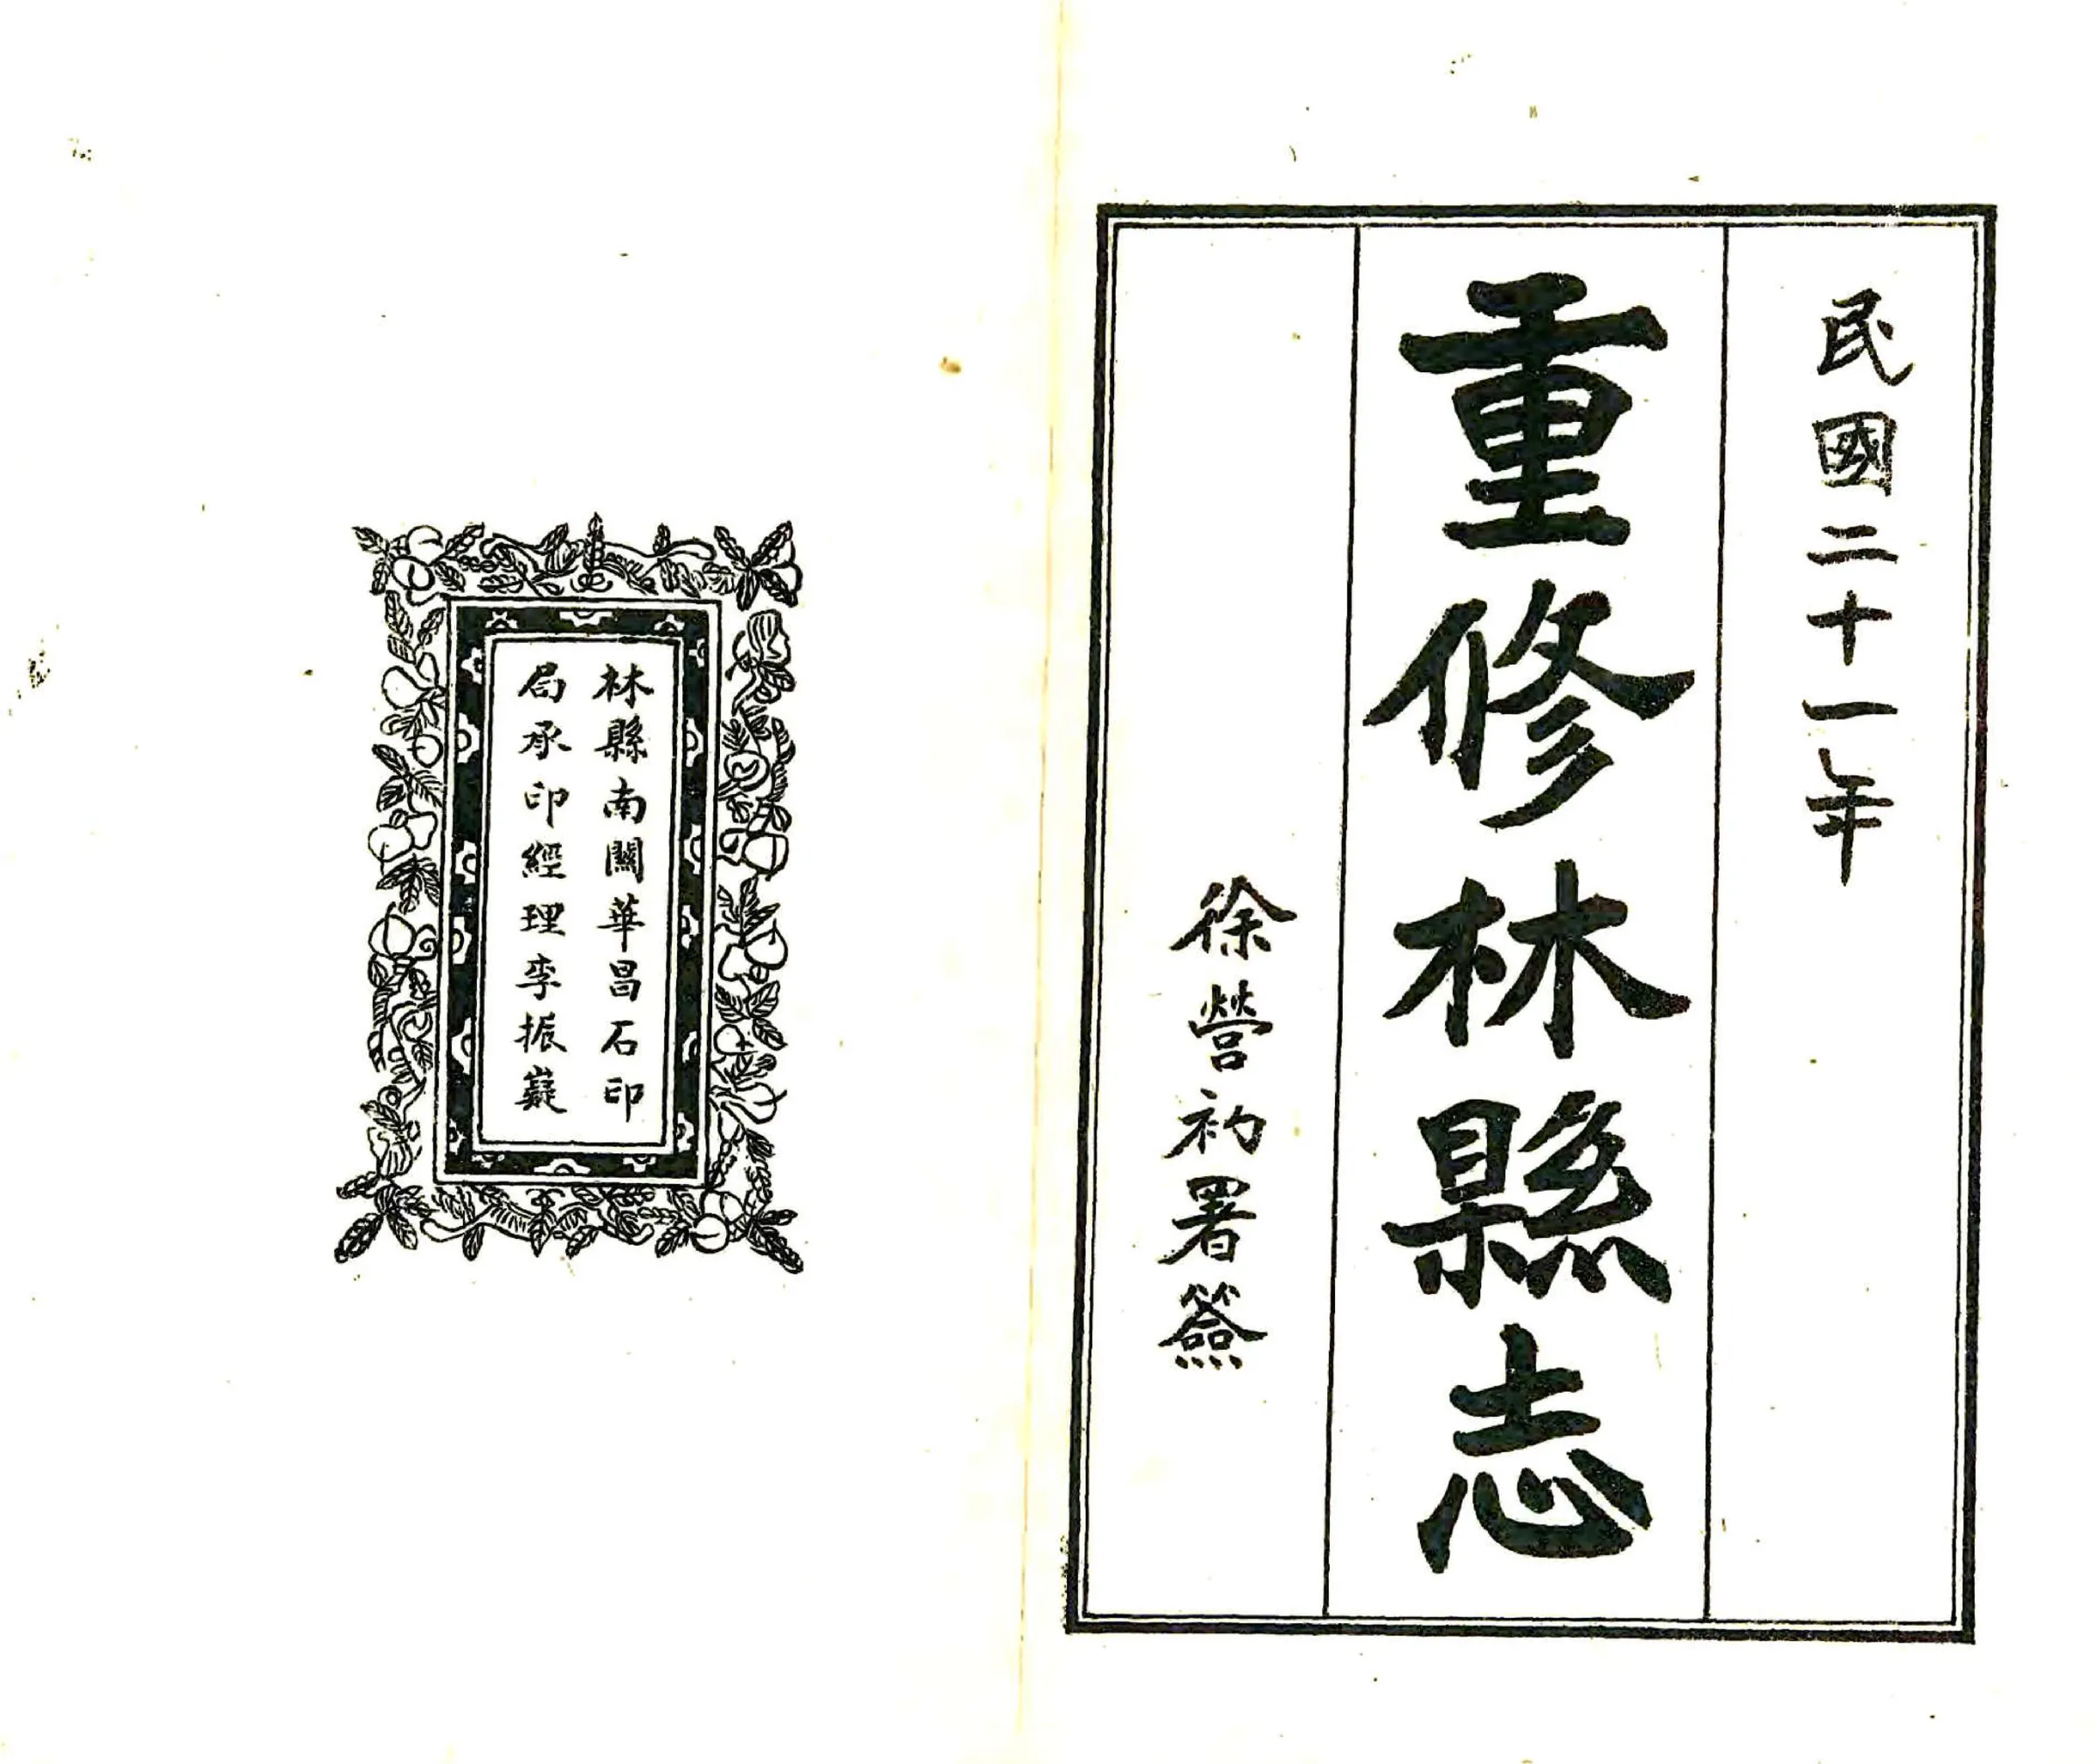 民國二十一年
重修林縣志
徐營礿署簽
林縣南關華昌石印
局承印經理李振嶷